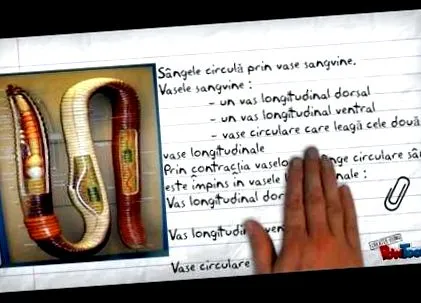 Sângele circulă prin vase sangvine.
Vasele sangvine :
- un vas longitudinal dorsal
- un vas longitudinal ventral
- vase circulare care leagă cele două
vase longitudinale
Prin contracția circulare
este împins în vasele
Vas longitudinal
Vas longitudinal
Vase circulare